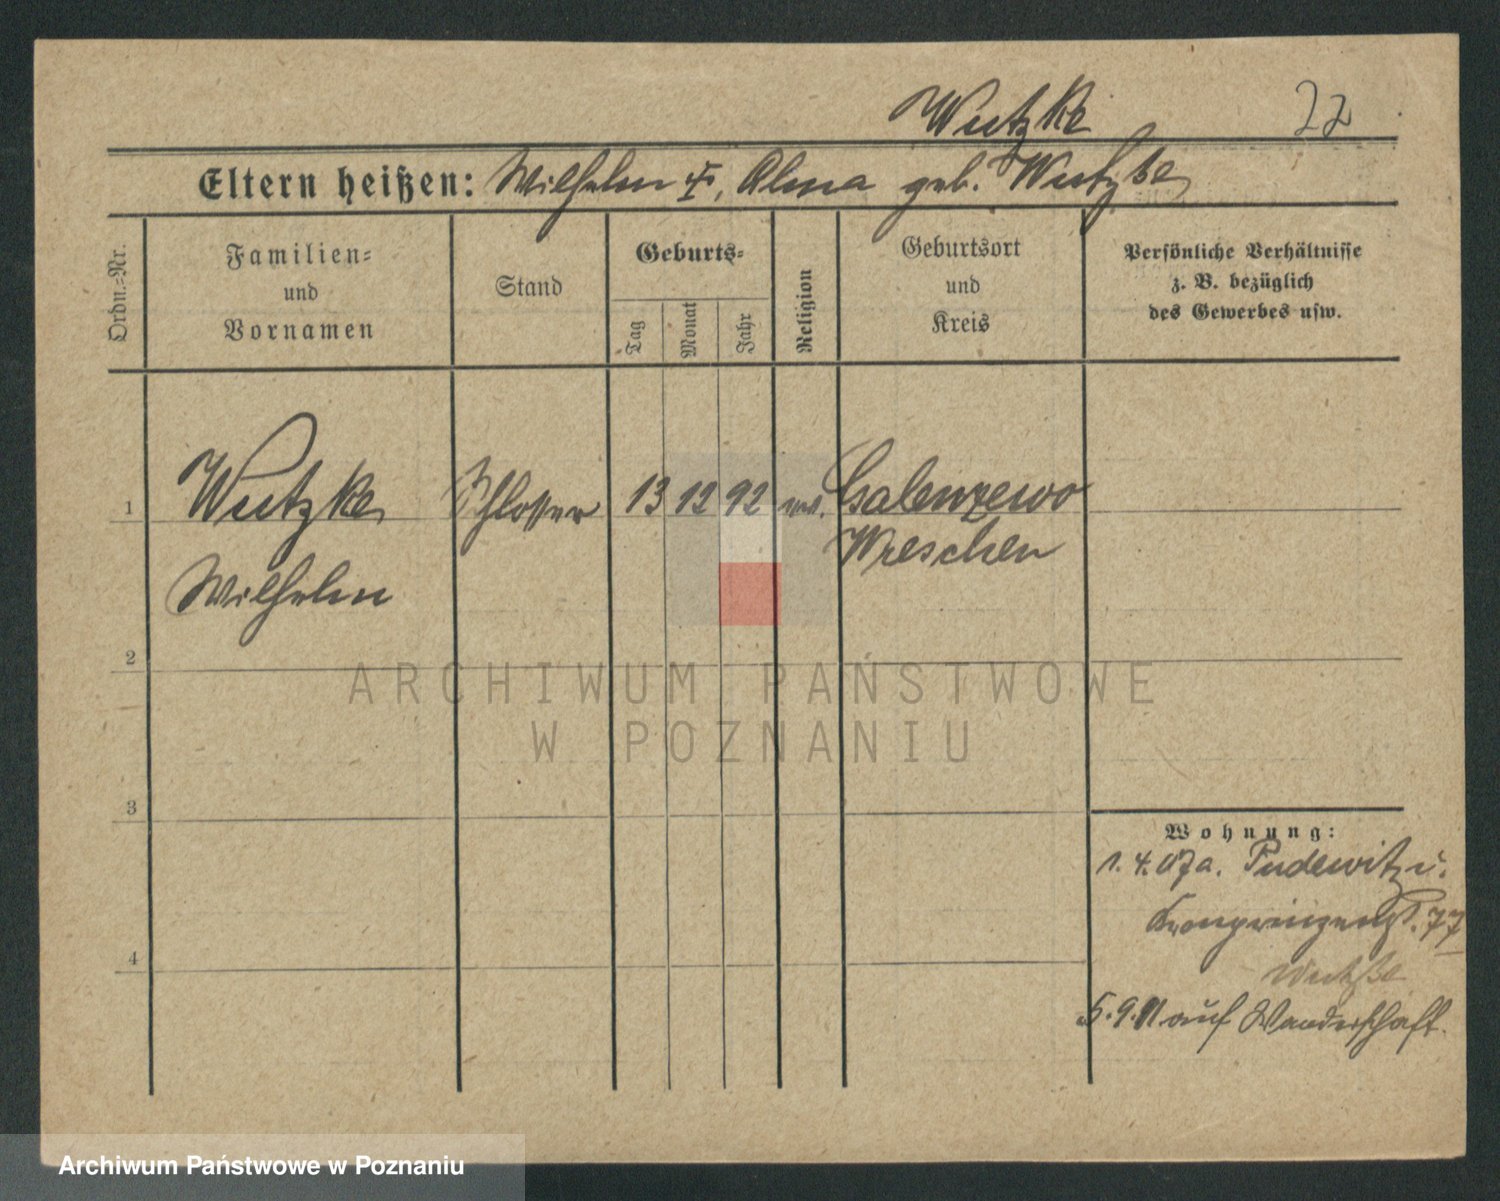 Wutzke 22
Eltern heißen: Wilhelm †, Alma geb. Wutzke
Ordn.-Nr.
Familien-
und
Vornamen
Stand
Geburts-
Tag
Monat
Jahr
Religion
Geburtsort
und
Kreis
Persönliche Verhältnisse
z. B. bezüglich
des Gewerbes usw.
1 Wutzke Schlosser 13 12 92 ev.
Wreschen
Wilhelm
2
ARCHIWUM PAŃSTWOWE
W POZNANIU
3
Wohnung:
1.4.07 a. Pudewitz
Kronprinzenst. 77
Wutzke
5.9.11 auf Wanderschaft.
4
Archiwum Państwowe w Poznaniu